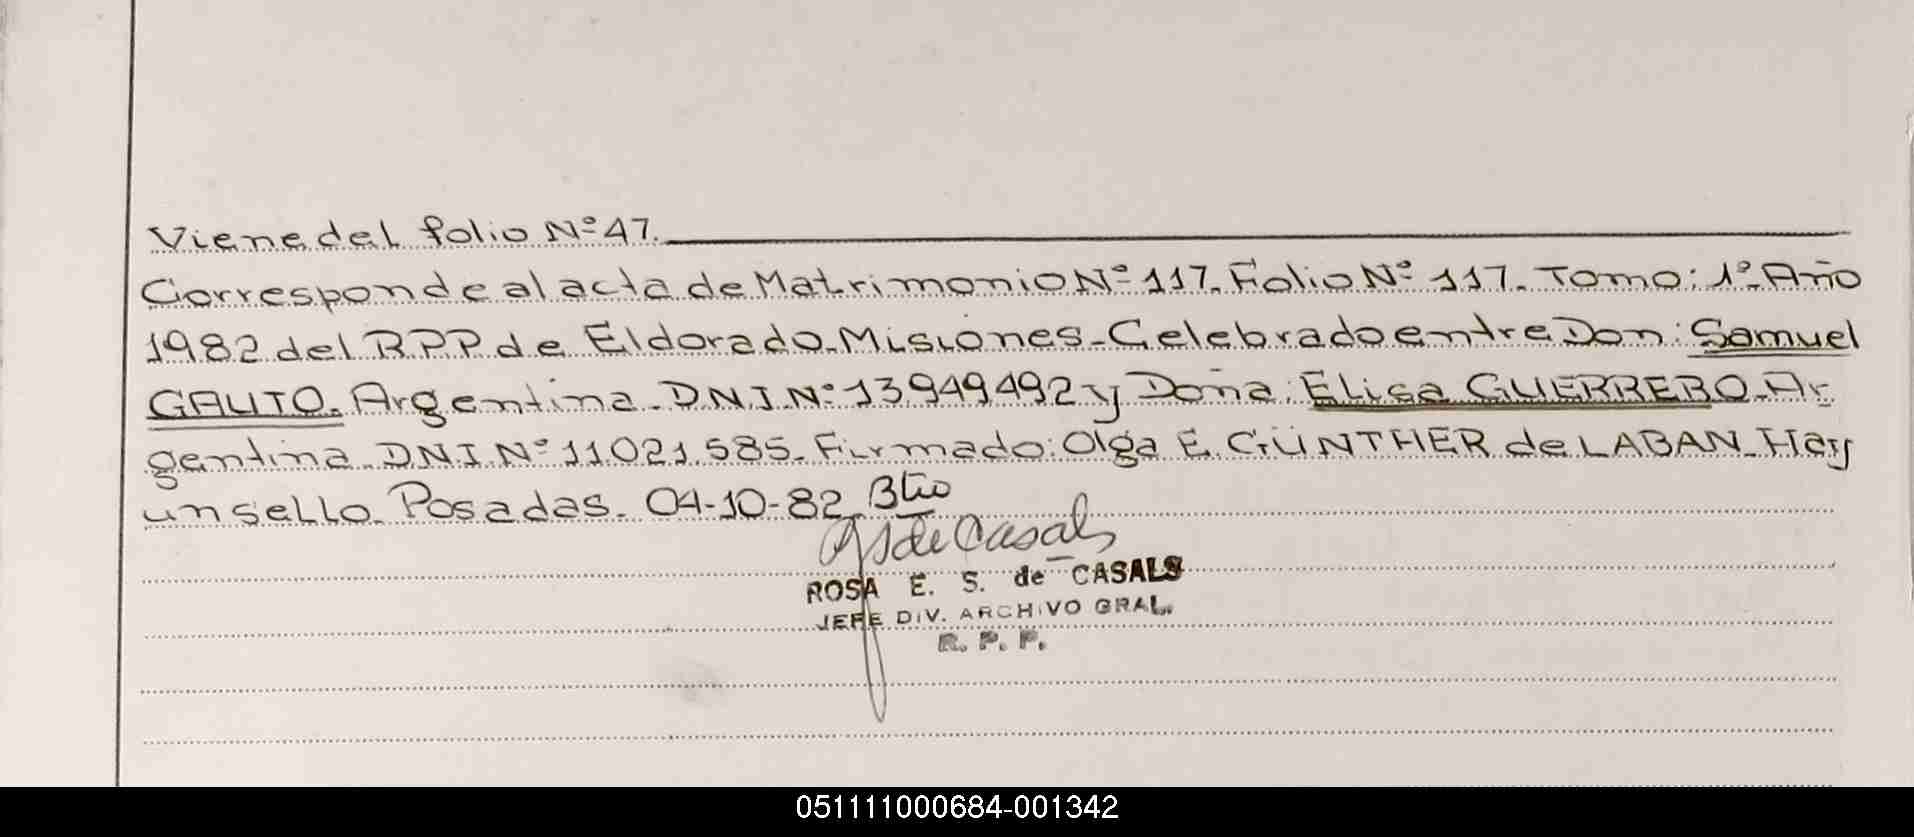 Viene del folio Nº 47.
Corresponde al acta de Matrimonio Nº 117. Folio Nº 117. Tomo: 1º. Año
1982 del RPP de Eldorado. Misiones. Celebrado entre Don: Samuel
GAUTO. Argentina. DNI. Nº 13949492 y Doña: Elisa GUERRERO. Ar
gentina. DNI Nº 11021.585. Firmado: Olga E. GÜNTHER de LABAN. Hay
un sello. Posadas. 04-10-82
de Casals
ROSA E. S. de CASALS
JEFE DIV. ARCHIVO GRAL.
R. P. P.
051111000684-001342